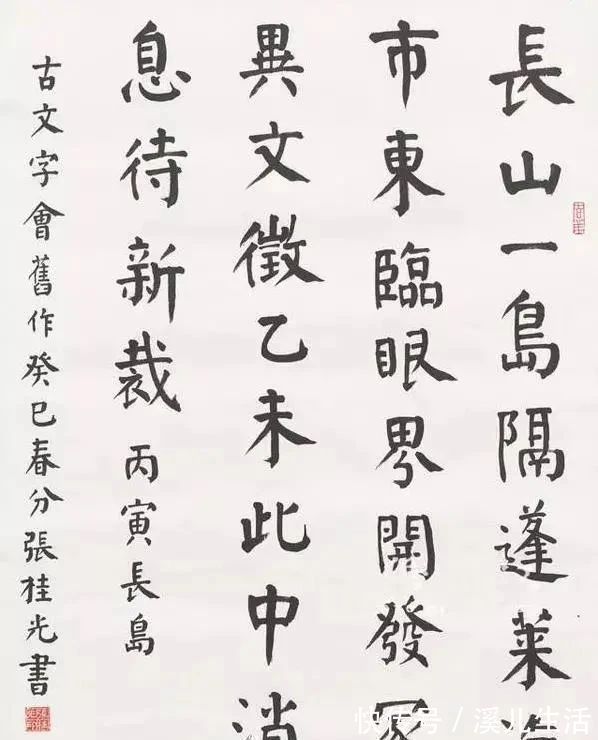 長山一島隔蓬萊
市東臨眼界開發
異文徵乙未此中消
息待新裁 丙寅長島
古文字會舊作癸巳春分張桂光書
快传号/溪儿生活